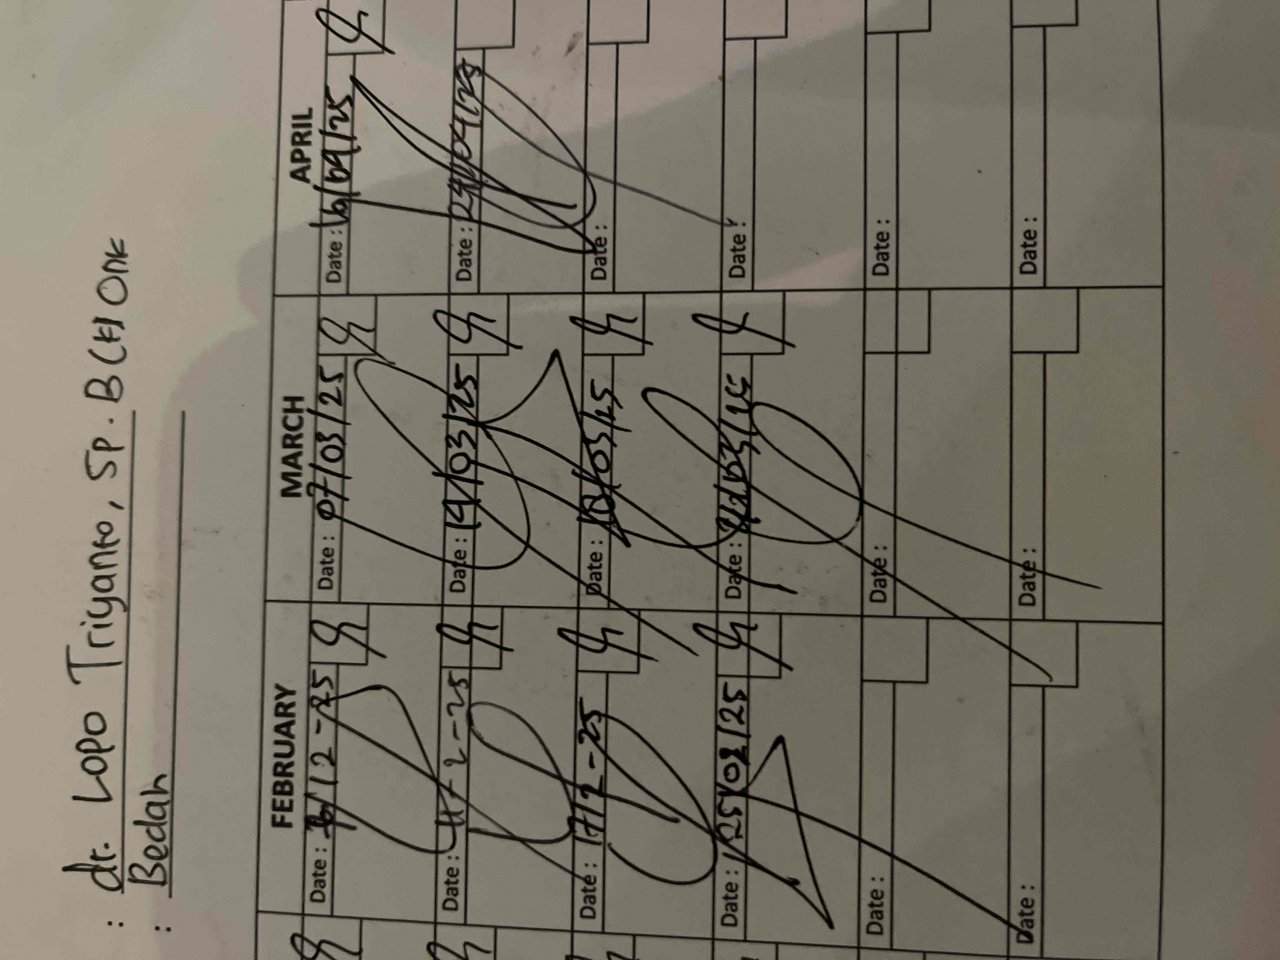 : dr. LOPO Triyanto, SP. B (K) Onk
: Bedah
FEBRUARY MARCH APRIL
Date : Date : 07/03/25 Date : 16/04/25
Date : 11-2-25 Date : 14/03/25 Date :
Date : 17/2-25 Date : Date :
Date : 25/02/25 Date : Date :
Date : Date : Date :
Date : Date : Date :